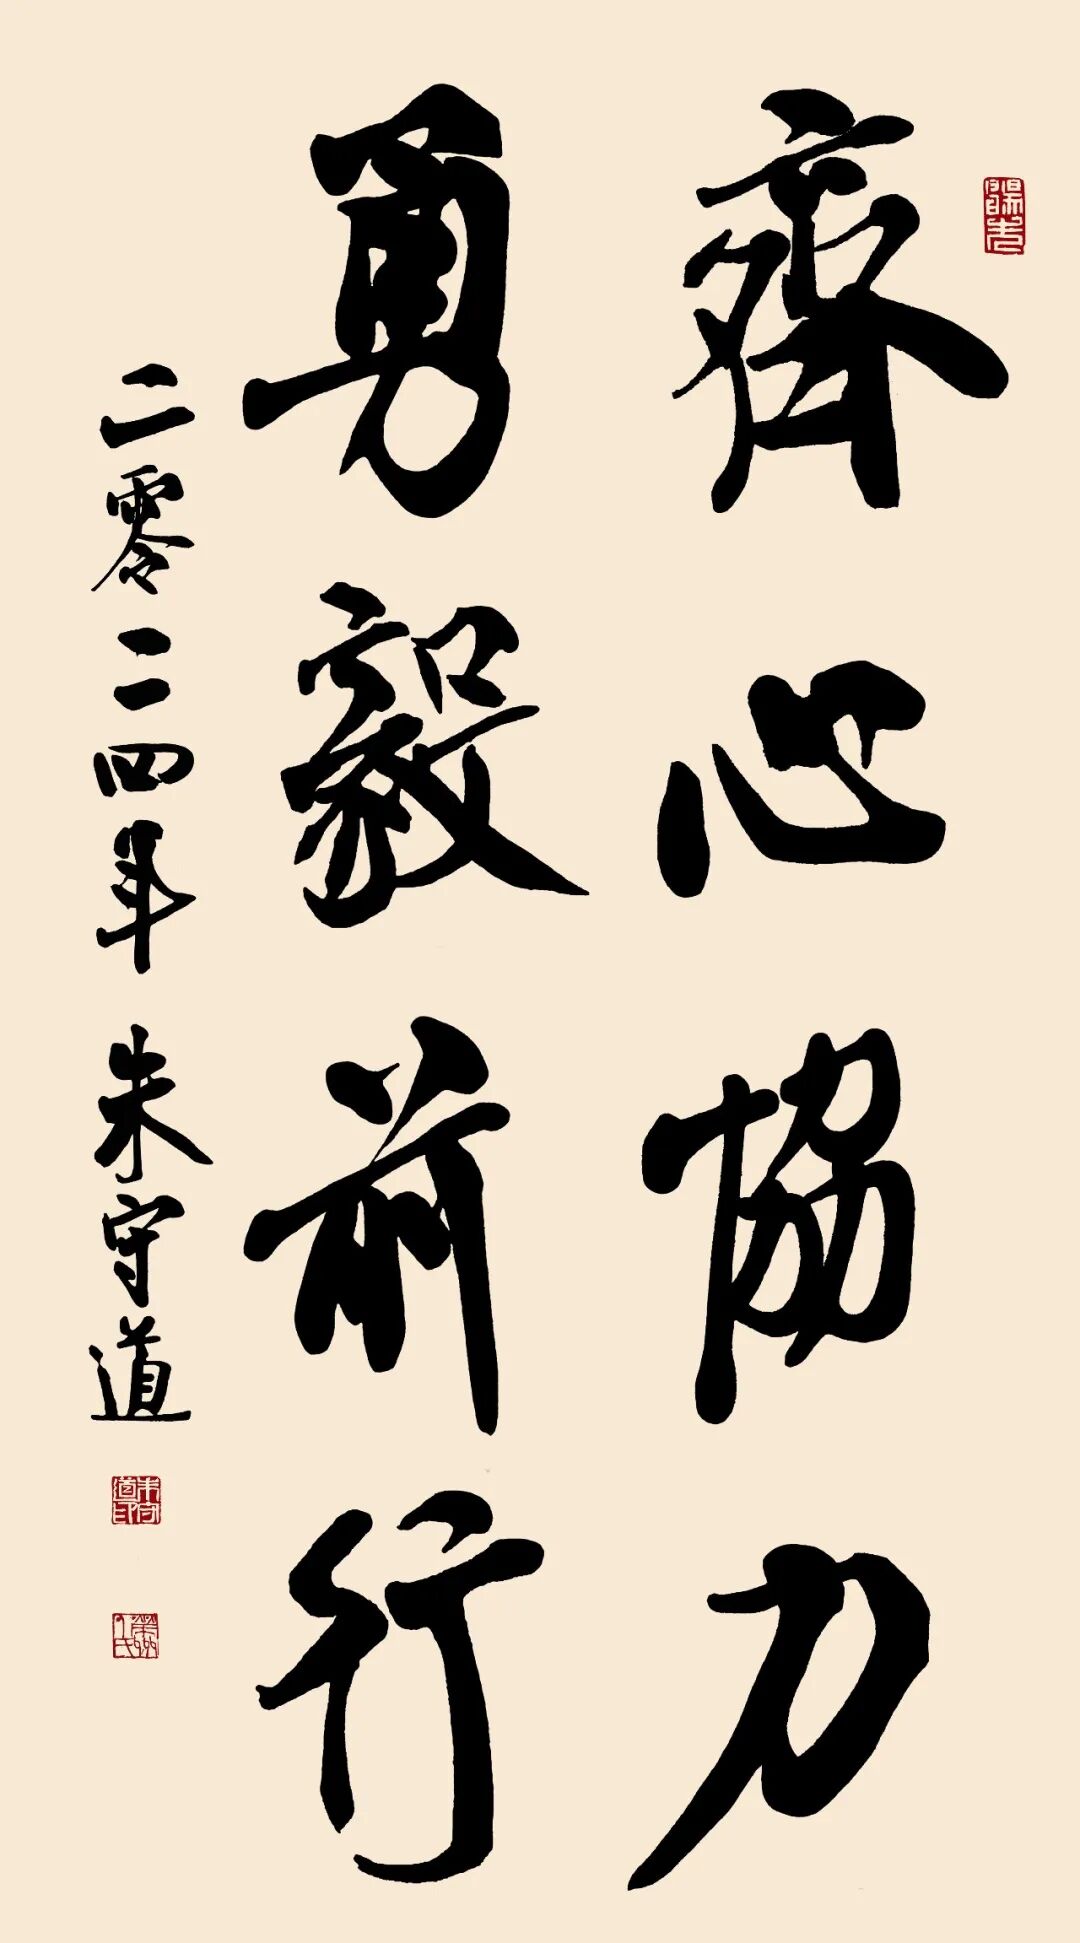 齊心協力
勇毅前行
二零二四年 朱守道
朱守道印